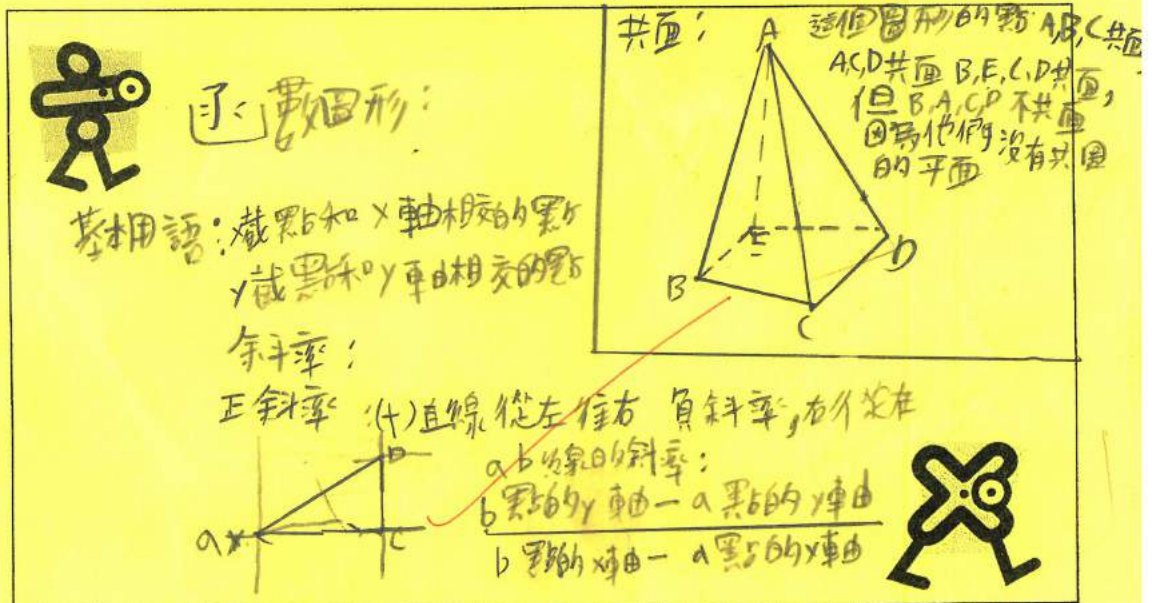 函數圖形：
基本用語：x截點和x軸相交的點
y截點和y軸相交的點
斜率：
正斜率：(+)直線從左往右 負斜率，右
a b 線的斜率：
b點的y軸－a點的y軸
b點的x軸－a點的x軸
a
b
c
共面：
這個圖形的點A,B,C共面，
A,C,D共面 B,E,C,D共面，
但B,A,C,D不共面，
因為他們沒有共同
的平面
A
B
C
D
E